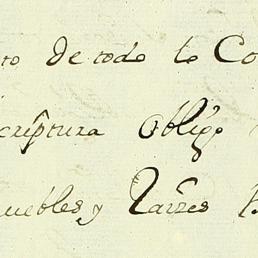 to de todo lo Co
criptura obligo
uebles y Raizes